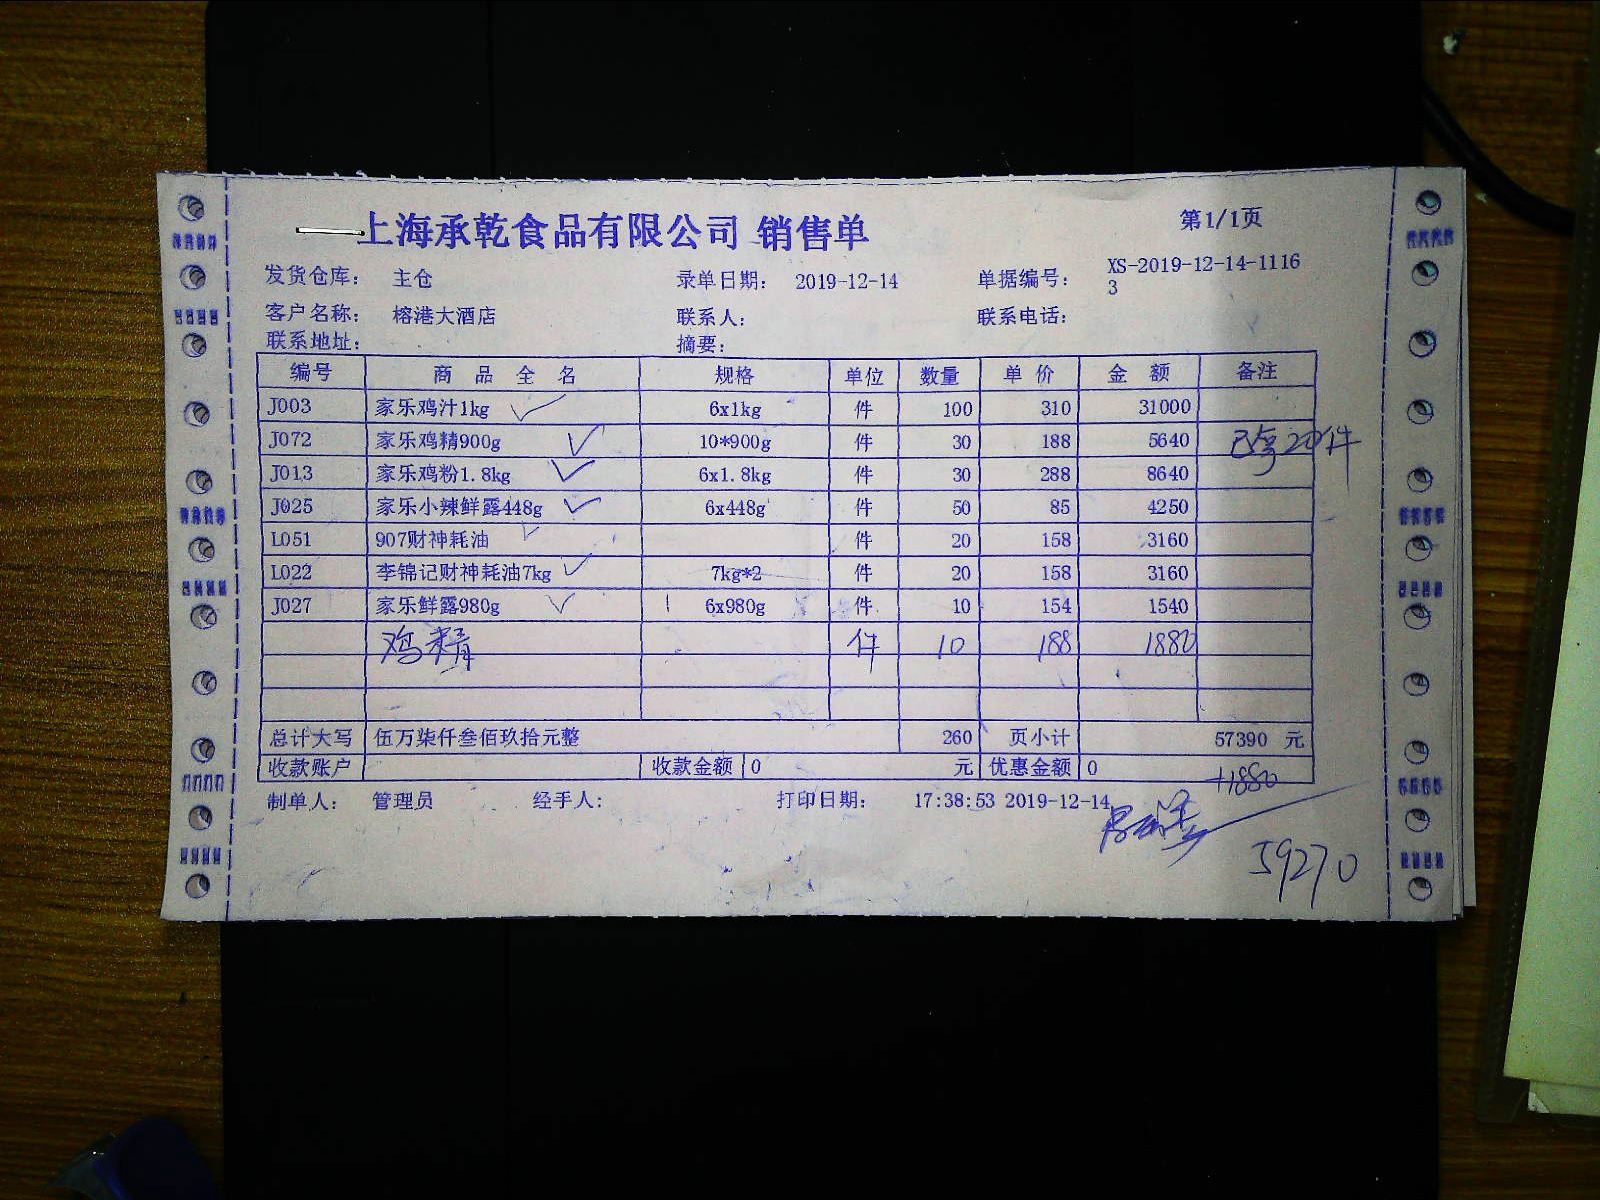 上海承乾食品有限公司 销售单
第1/1页
发货仓库： 主仓 录单日期： 2019-12-14 单据编号： XS-2019-12-14-1116
3
客户名称： 榕港大酒店 联系人： 联系电话：
联系地址： 摘要：
编号 商品全名 规格 单位 数量 单价 金额 备注
J003 家乐鸡汁1kg 6x1kg 件 100 310 31000
J072 家乐鸡精900g 10*900g 件 30 188 5640 20件
J013 家乐鸡粉1.8kg 6x1.8kg 件 30 288 8640
J025 家乐小辣鲜露448g 6x448g 件 50 85 4250
L051 907财神耗油 件 20 158 3160
L022 李锦记财神耗油7kg 7kg*2 件 20 158 3160
J027 家乐鲜露980g 6x980g 件 10 154 1540
鸡精 件 10 188 1880
总计大写 伍万柒仟叁佰玖拾元整 260 页小计 57390 元
收款账户 收款金额 0 元 优惠金额 0
+1880
制单人： 管理员 经手人： 打印日期： 17:38:53 2019-12-14
59270